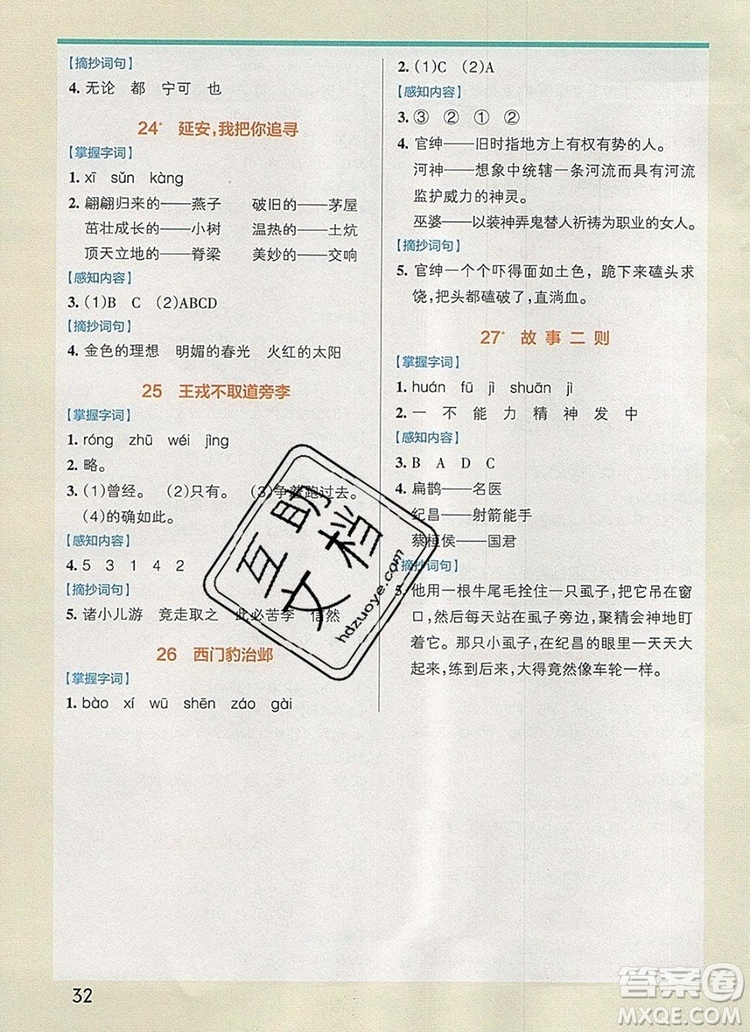 【摘抄词句】
4. 无论 都 宁可 也
24* 延安,我把你追寻
【掌握字词】
1. xī sǔn kàng
2. 翩翩归来的——燕子 破旧的——茅屋
茁壮成长的——小树 温热的——土炕
顶天立地的——脊梁 美妙的——交响
【感知内容】
3. (1)B C (2)ABCD
【摘抄词句】
4. 金色的理想 明媚的春光 火红的太阳
25 王戎不取道旁李
【掌握字词】
1. róng zhū wéi jìng
2. 略。
3. (1)曾经。 (2)只有。 (3)争着跑过去。
(4)的确如此。
【感知内容】
4. 5 3 1 4 2
【摘抄词句】
5. 诸小儿游 竞走取之 此必苦李 信然
26 西门豹治邺
【掌握字词】
1. bào xí wū shēn záo gài
2. (1)C (2)A
【感知内容】
3. ③ ② ① ②
4. 官绅——旧时指地方上有权有势的人。
河神——想象中统辖一条河流而具有河流
监护威力的神灵。
巫婆——以装神弄鬼替人祈祷为职业的女人。
【摘抄词句】
5. 官绅一个个吓得面如土色,跪下来磕头求
饶,把头都磕破了,直淌血。
27* 故事二则
【掌握字词】
1. huán fū jì shuān jì
2. 一 不 能 力 精 神 发 中
【感知内容】
3. B A D C
4. 扁鹊——名医
纪昌——射箭能手
蔡桓侯——国君
【摘抄词句】
5. 他用一根牛尾毛拴住一只虱子,把它吊在窗
口,然后每天站在虱子旁边,聚精会神地盯
着它。那只小虱子,在纪昌的眼里一天天大
起来,练到后来,大得竟然像车轮一样。
互助文档
hdzuoye.com
32
答案圈
MXQE.COM